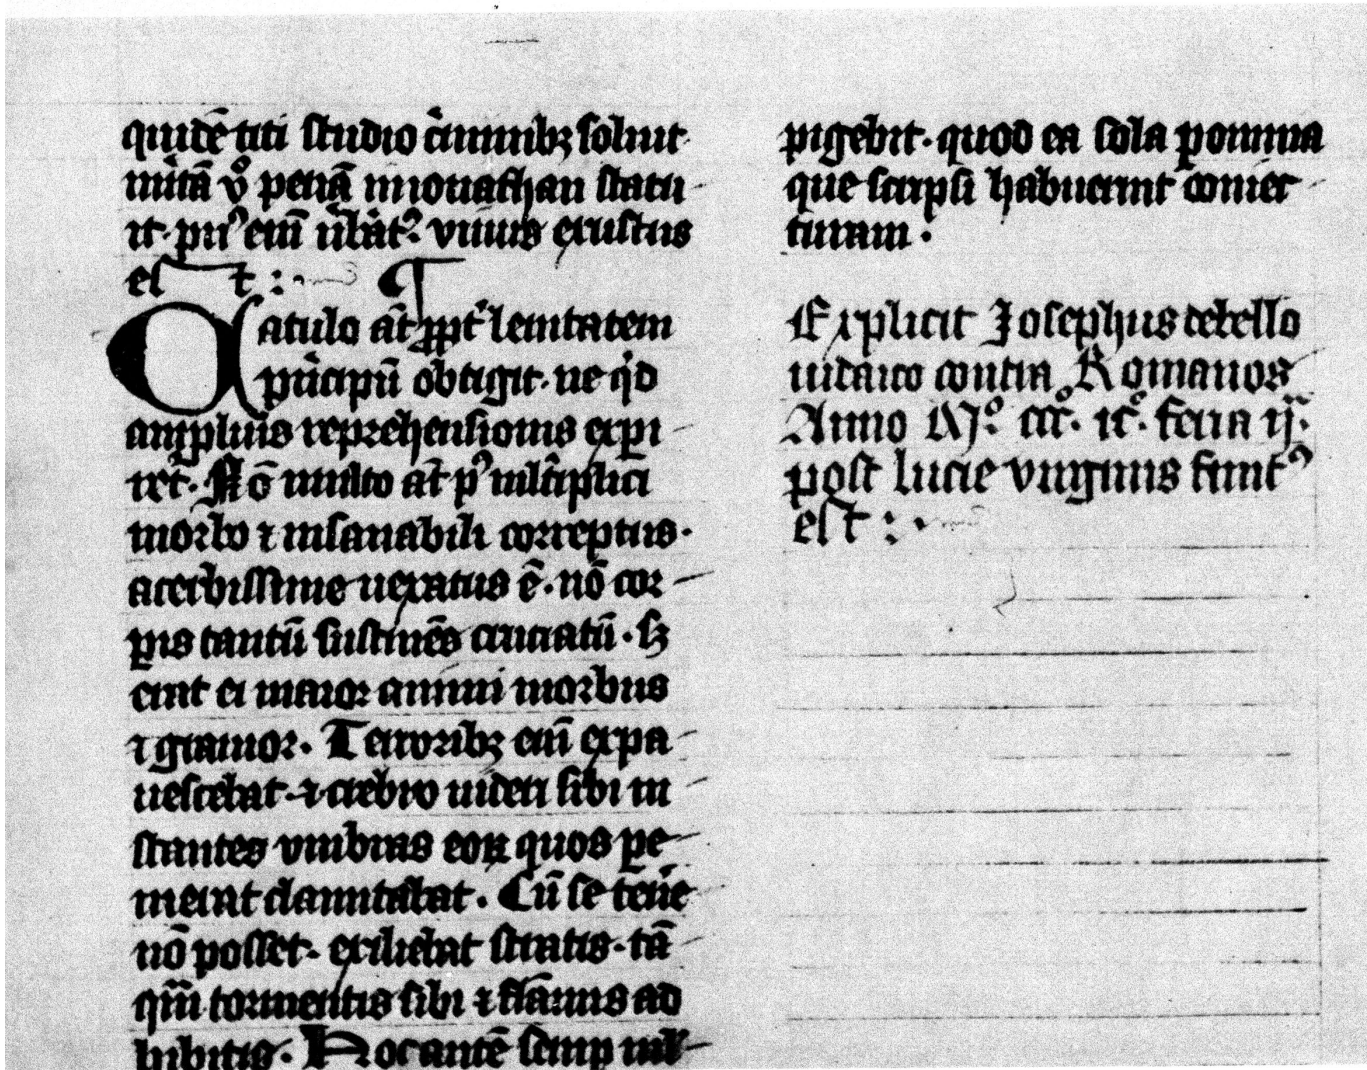 quidē titi studio c̾iminibꝫ soluit
mĩtã v̊ penã in ionathan statu
it · pri᷒ eni᷑ u̾b̾at᷒ · viuus exustus
est :
Catulo aũt ꝓpt̾ lenitatem
pͥncipũ obtigit · ne qͥd
amplius reprehensionis expi
ret᷑ · Nō multo aũt pꝰ mltiplici
morbo ⁊ insanabili correptus ·
acerbissime uexatus ē · nō cor
pis tantũ sustinēs cruciatũ · sꝫ
erat ei maior animi morbus
⁊ grauior · Terroribꝫ eni᷑ expa
uescebat · ⁊ crebro uideri sibi in
stantes vmbras eoꝝ quos pe
merat clamitabat · Cũ se tene᷑
nō posset · exiliebat stratis · tã
qm̃ tormentis sibi ⁊ flãmis ad
hibitis · Hoc autē semp mł
pigebit · quod ea sola ꝑ omnia
que scripsi habuerint coniec
turam ·
Explicit Josephus de bello
iudaico contra Romanos
Anno Mͦ · cccͦ · lxͦ · feria ij ·
post lucie virginis finitꝰ
est :